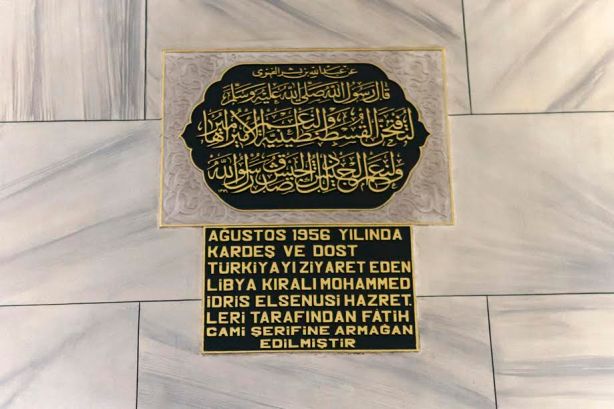 عن عبد الله بن بشر الغنوي
قال رسول الله صلى الله عليه وسلم
لتفتحن القسطنطينية ولنعم الأمير أميرها
ولنعم الجيش ذلك الجيش صدق رسول الله
AĞUSTOS 1956 YILINDA
KARDEŞ VE DOST
TÜRKİYAYI ZİYARET EDEN
LİBYA KIRALI MOHAMMED
İDRİS ELSENUSİ HAZRET.
LERİ TARAFINDAN FATİH
CAMİ ŞERİFİNE ARMAĞAN
EDİLMİŞTİR